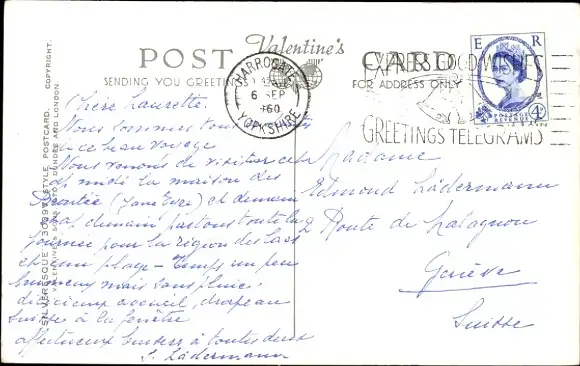 POST Valentine's CARD
SENDING YOU GREETINGS FOR ADDRESS ONLY
SILVERESQUE STYLE POSTCARD. COPYRIGHT.
VALENTINE & SONS LTD DUNDEE AND LONDON.
HARROGATE
6 SEP
1960
YORKSHIRE
EXPRESS GOOD WISHES
GREETINGS TELEGRAMS
E R
POSTAGE
REVENUE
4d
Chère Laurette.
Nous sommes
ce beau voyage
Nous venons de visiter cet
midi la maison des
Brontëe (Jane Eyre) et demain
demain partons toute la
journée pour la région des lacs
et plage - Temps un peu
brumeux mais sans pluie.
délicieux accueil, drapeau
suisse à la fenêtre
affectueux baisers à toutes deux
S. Lädermann
Madame
Edmond Lädermann
2 Route de Malagnou
Genève
Suisse